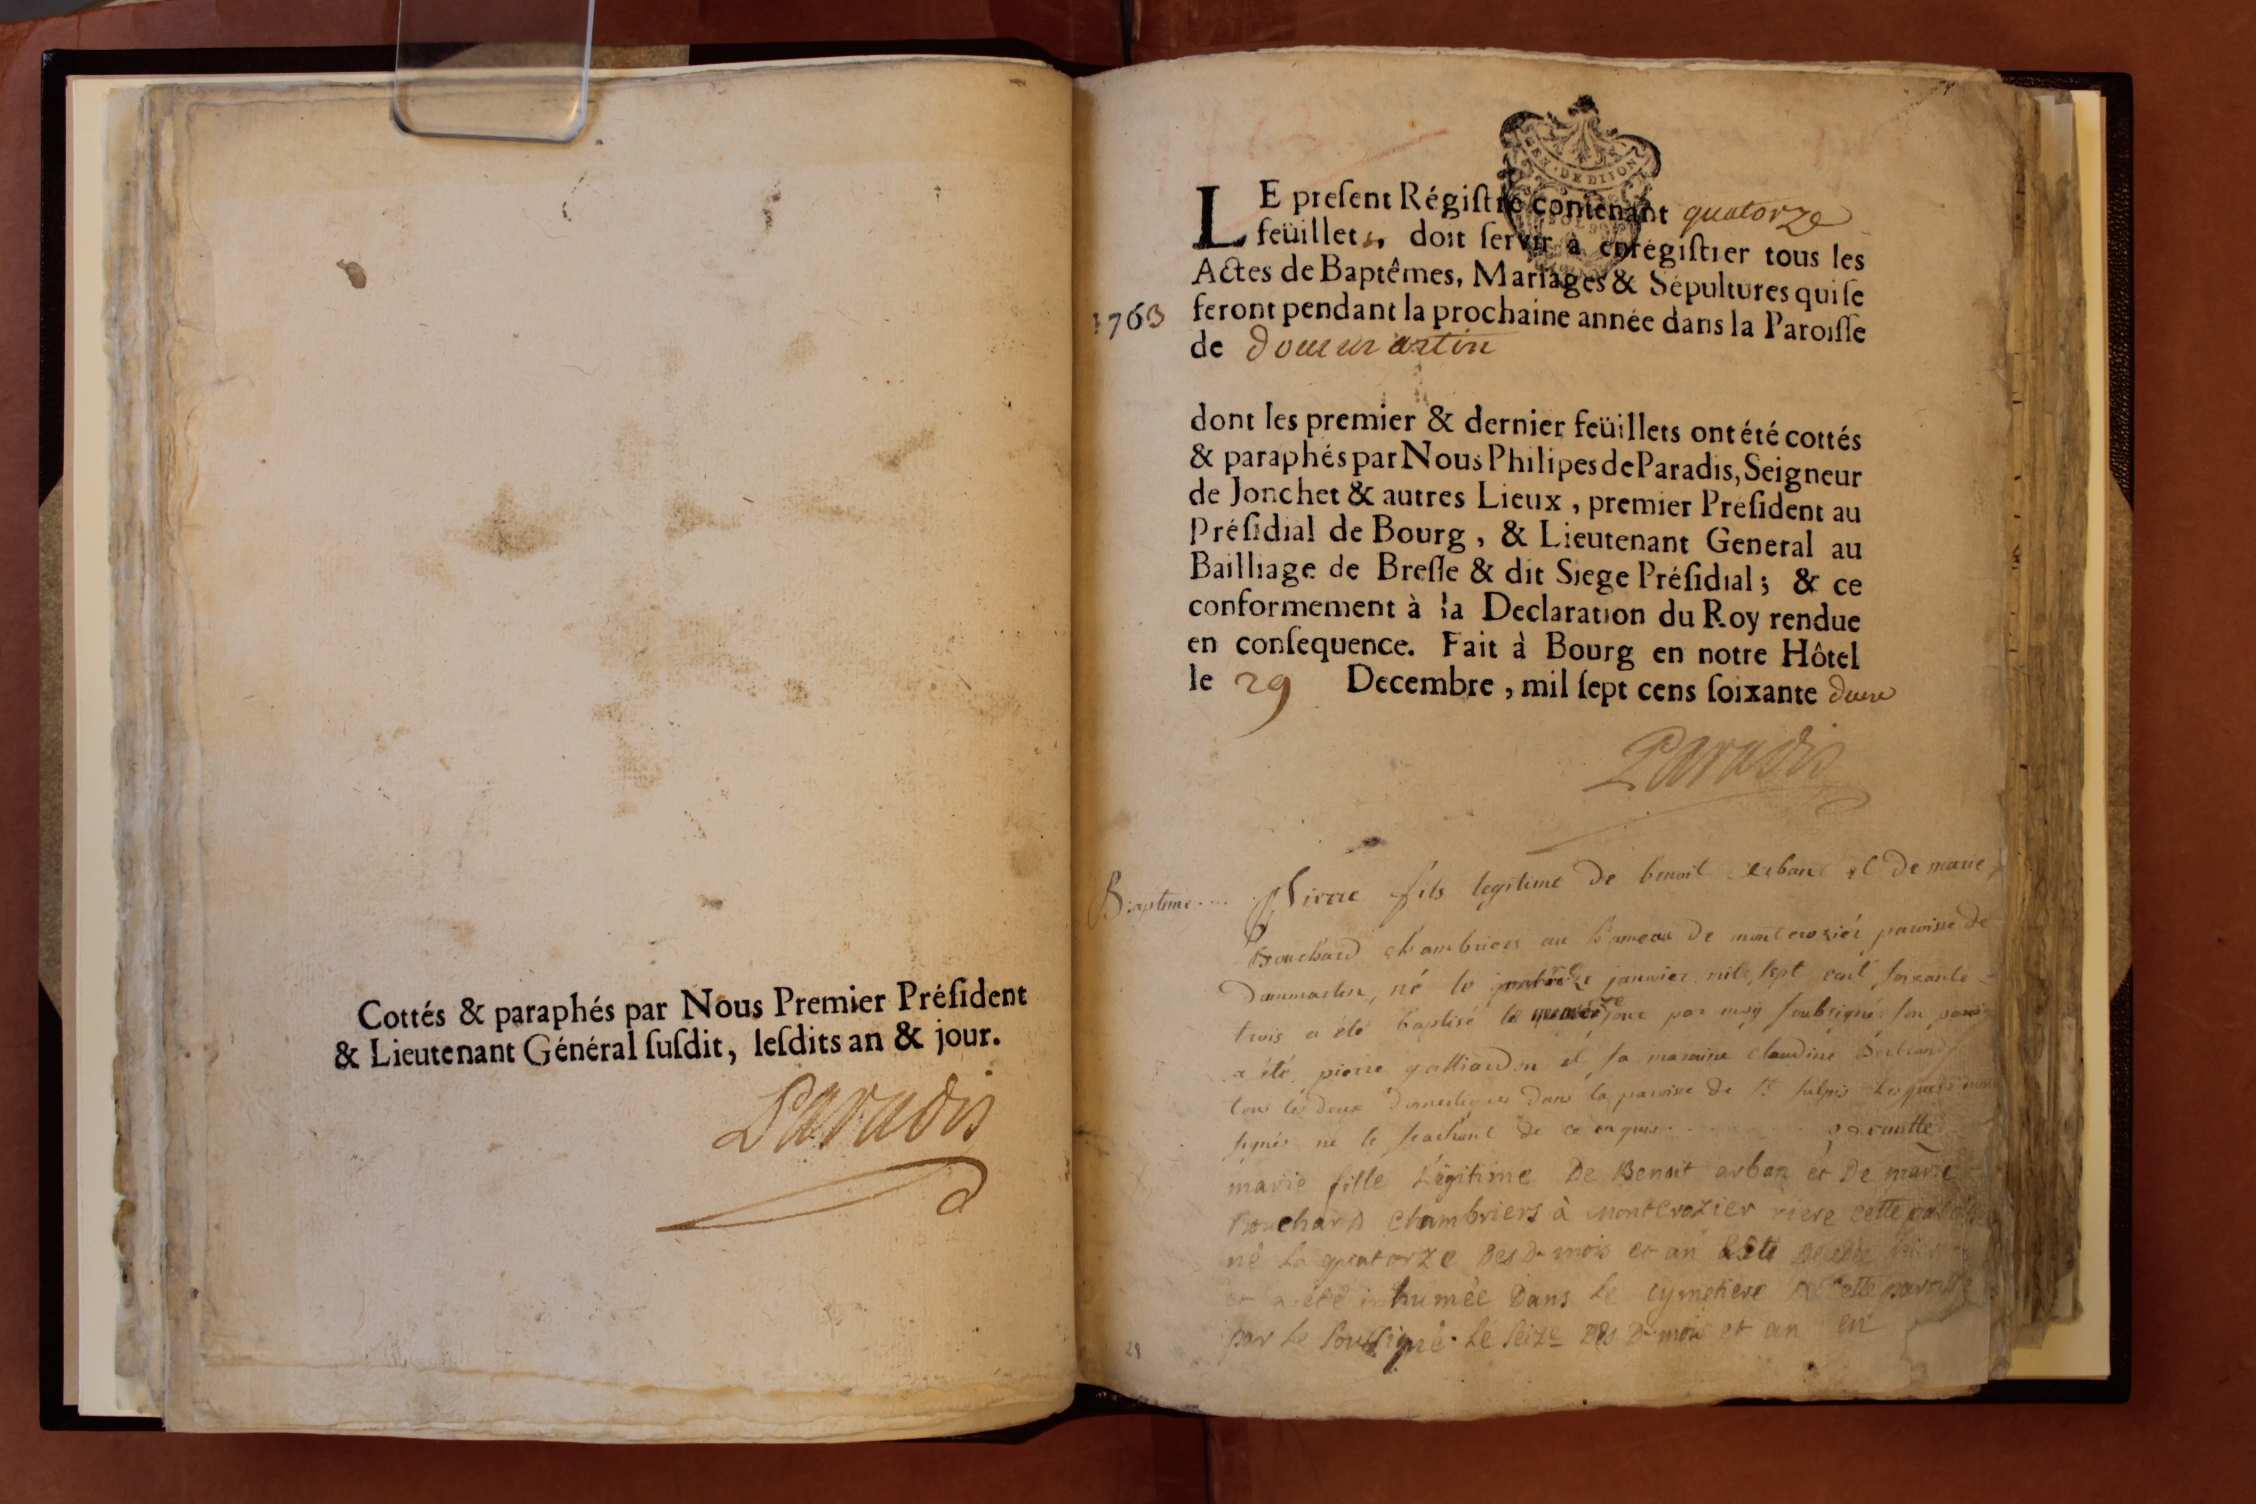 Cottés & paraphés par Nous Premier Préſident
& Lieutenant Général ſuſdit, leſdits an & jour.
Paradis
GEN. DE DIJON
LE preſent Régiſtre contenant quatorze
feüillets, doit ſervir à enrégiſtrer tous les
Actes de Baptêmes, Mariages & Sépultures qui ſe
1763
feront pendant la prochaine année dans la Paroiſſe
de dommartin
dont les premier & dernier feüillets ont été cottés
& paraphés par Nous Philipes de Paradis, Seigneur
de Jonchet & autres Lieux, premier Préſident au
Préſidial de Bourg, & Lieutenant General au
Bailliage de Breſſe & dit Siege Préſidial; & ce
conformement à la Declaration du Roy rendue
en conſequence. Fait à Bourg en notre Hôtel
le 29 Decembre, mil ſept cens ſoixante deux
Paradis
Baptême.... Pierre fils legitime de benoit arban et de marie
Bouchard chambriers au hameau de montcrozier paroisse de
Dommartin, né le janvier mil sept cent soixante
trois a été baptisé le jour par moy soubsigné son parain
a été pierre et sa maraine claudine
tous les deux domestiques dans la paroisse de St Sulpis lesquels n'ont
signés ne le scachant de ce enquis
marie fille Légitime De Benoit arban et De marie
Bouchard chambriers à montcrozier riere cette paroisse
né Le quatorze Des d. mois et an
et a été inhumée Dans Le cymetiere de cette paroisse
par Le soussigné Le seize des d. mois et an
28